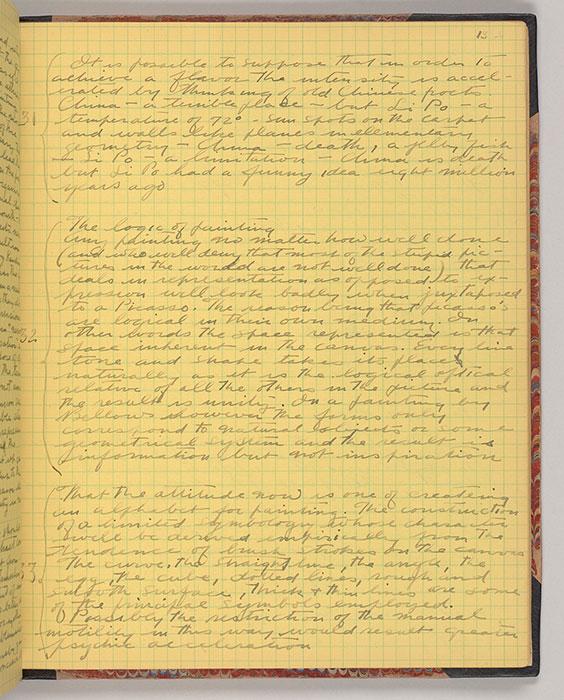 13
It is possible to suppose that in order to
achieve a flavor the intensity is accel-
erated by thinking of old Chinese poets
China - a terrible place - but Li Po - a
31
temperature of 72° - sun spots on the carpet
and walls like planes in elementary
geometry - China - death, a filthy fish
- Li Po - a limitation - China is death
but Li Po had a funny idea eight million
years ago
The logic of painting
Any painting no matter how well done
(and who will deny that most of the stupid pic-
tures in the world are not well done) that
deals in representation as opposed to ex-
pression will look badly when juxtaposed
to a Picasso. The reason being that Picasso's
are logical in their own medium. In
32
other words the space represented is that
space inherent in the canvas. Every line
tone and shape takes its place
naturally as it is the logical optical
relative of all the others in the picture and
the result is unity. In a painting by
Bellows however the forms only
correspond to natural objects or some
geometrical system and the result is
information but not inspiration
That the attitude now is one of createing
an alphabet for painting. The construction
of a limited symbology whose character
will be derived empirically from the
tendence of brush strokes on the canvas
33
The curve, the straight line, the angle, the
egg, the cube, doted lines, rough and
smooth surface, thick & thin lines are some
of the principal symbols employed.
Possibly the restriction of the manual
motility in this way would result greater
psychic acceleration